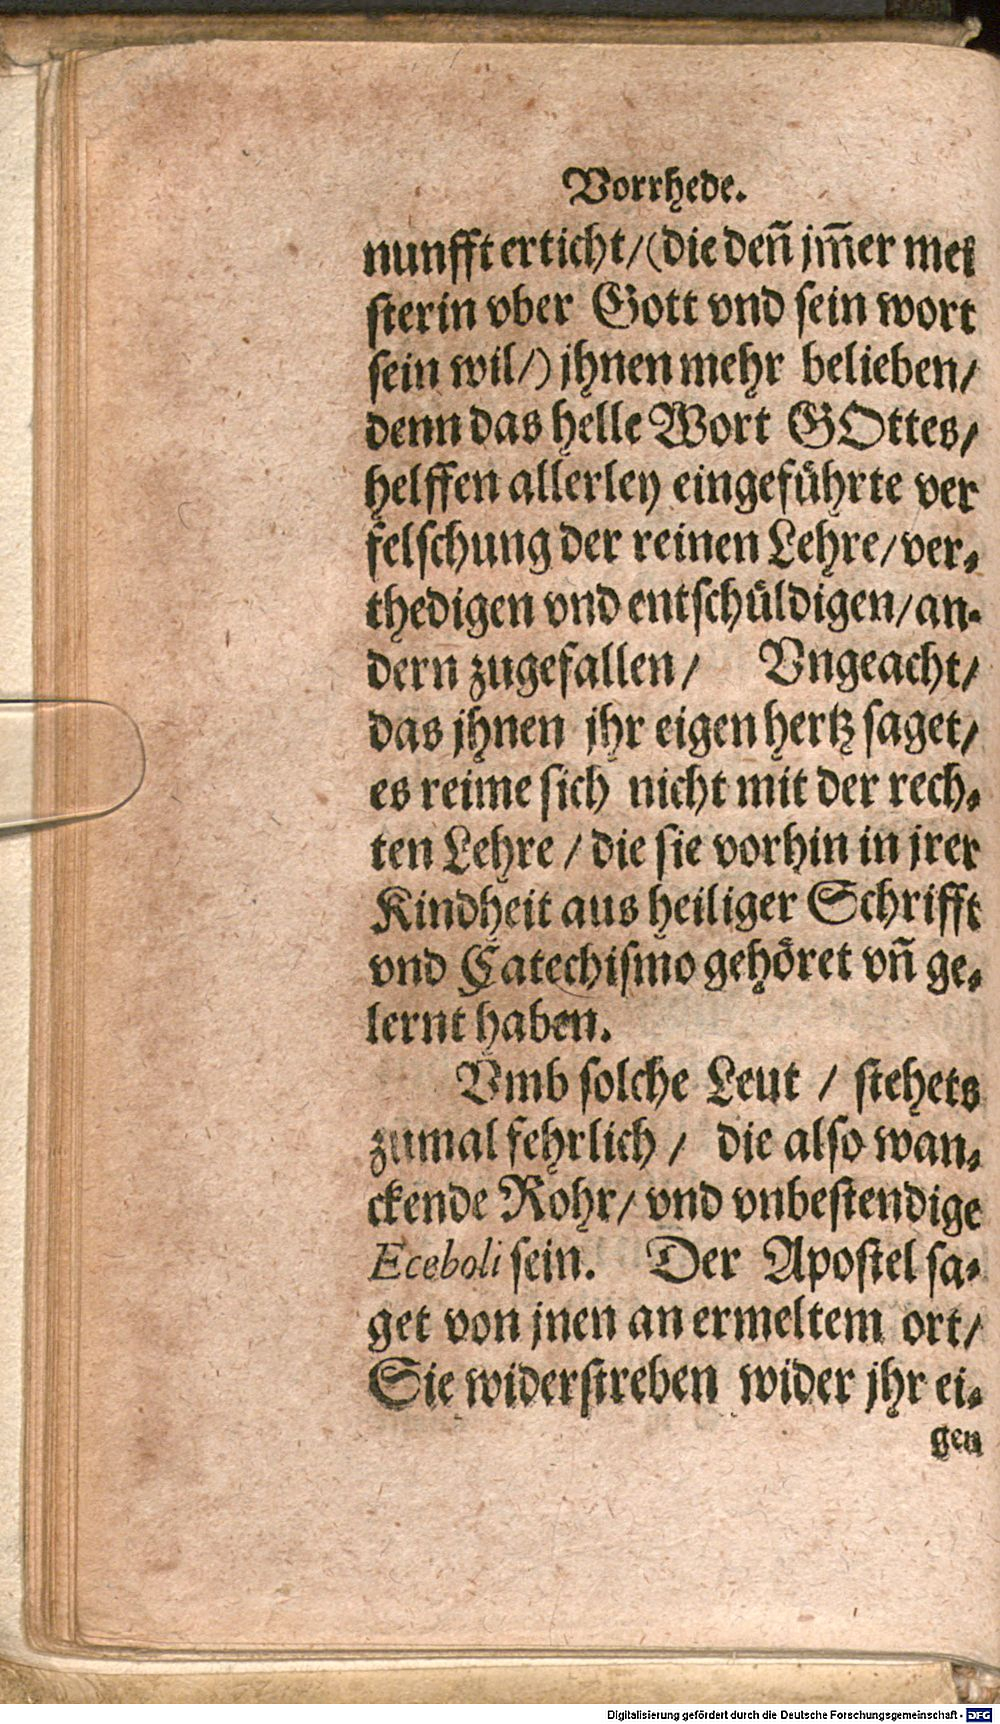 Vorrhede.
nunfft erticht/(die deñ jm̃er mei
sterin vber Gott vnd sein wort
sein wil/) jhnen mehr belieben/
denn das helle Wort GOttes/
helffen allerley eingeführte ver
felschung der reinen Lehre/ver⸗
thedigen vnd entschüldigen/an⸗
dern zugefallen/ Vngeacht/
das jhnen jhr eigen hertz saget/
es reime sich nicht mit der rech⸗
ten Lehre / die sie vorhin in jrer
Kindheit aus heiliger Schrifft
vnd Catechismo gehöret vñ ge⸗
lernt haben.
Vmb solche Leut / stehets
zumal fehrlich / die also wan⸗
ckende Rohr/ vnd vnbestendige
Eceboli sein. Der Apostel sa⸗
get von jnen an ermeltem ort/
Sie widerstreben wider jhr ei⸗
gen
Digitalisierung gefördert durch die Deutsche Forschungsgemeinschaft - DFG